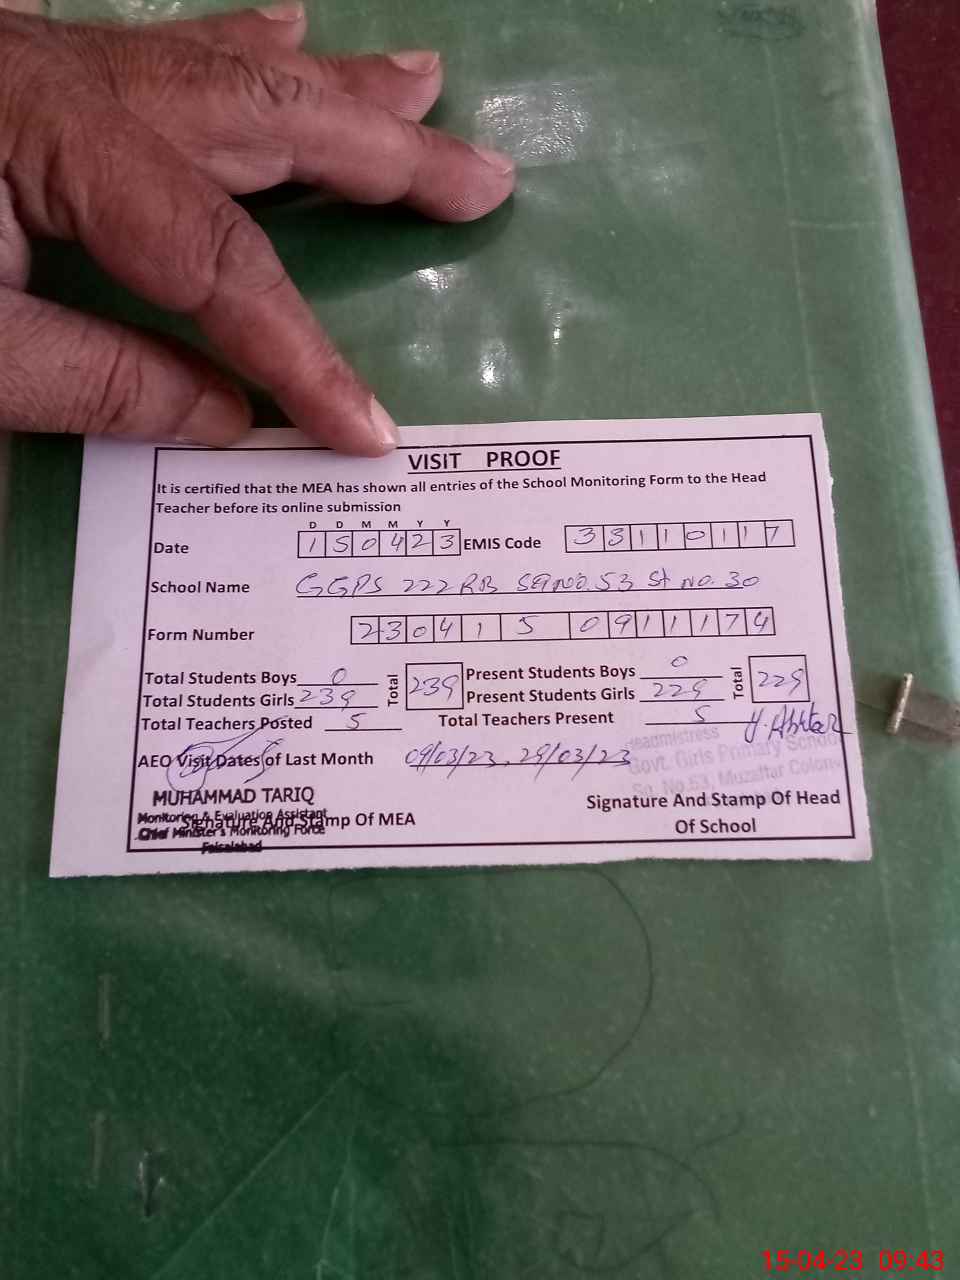 VISIT PROOF
It is certified that the MEA has shown all entries of the School Monitoring Form to the Head
Teacher before its online submission
D D M M Y Y
Date 150423 EMIS Code 33110117
School Name GGPS 222 RB SQ NO. 53 St no. 30
Form Number 2304150911174
Total Students Boys 0 Total 239 Present Students Boys 0 Total 229
Total Students Girls 239 Present Students Girls 229
Total Teachers Posted 5 Total Teachers Present 5
H. Akhtar
AEO Visit Dates of Last Month 09/03/23, 29/03/23
Headmistress
Govt. Girls Primary School
Sq. No.53, Muzaffar Colony
MUHAMMAD TARIQ
Monitoring & Evaluation Assistant
Chief Minister's Monitoring Force
Faisalabad
Signature And Stamp Of MEA
Signature And Stamp Of Head
Of School
15-04-23 09:43